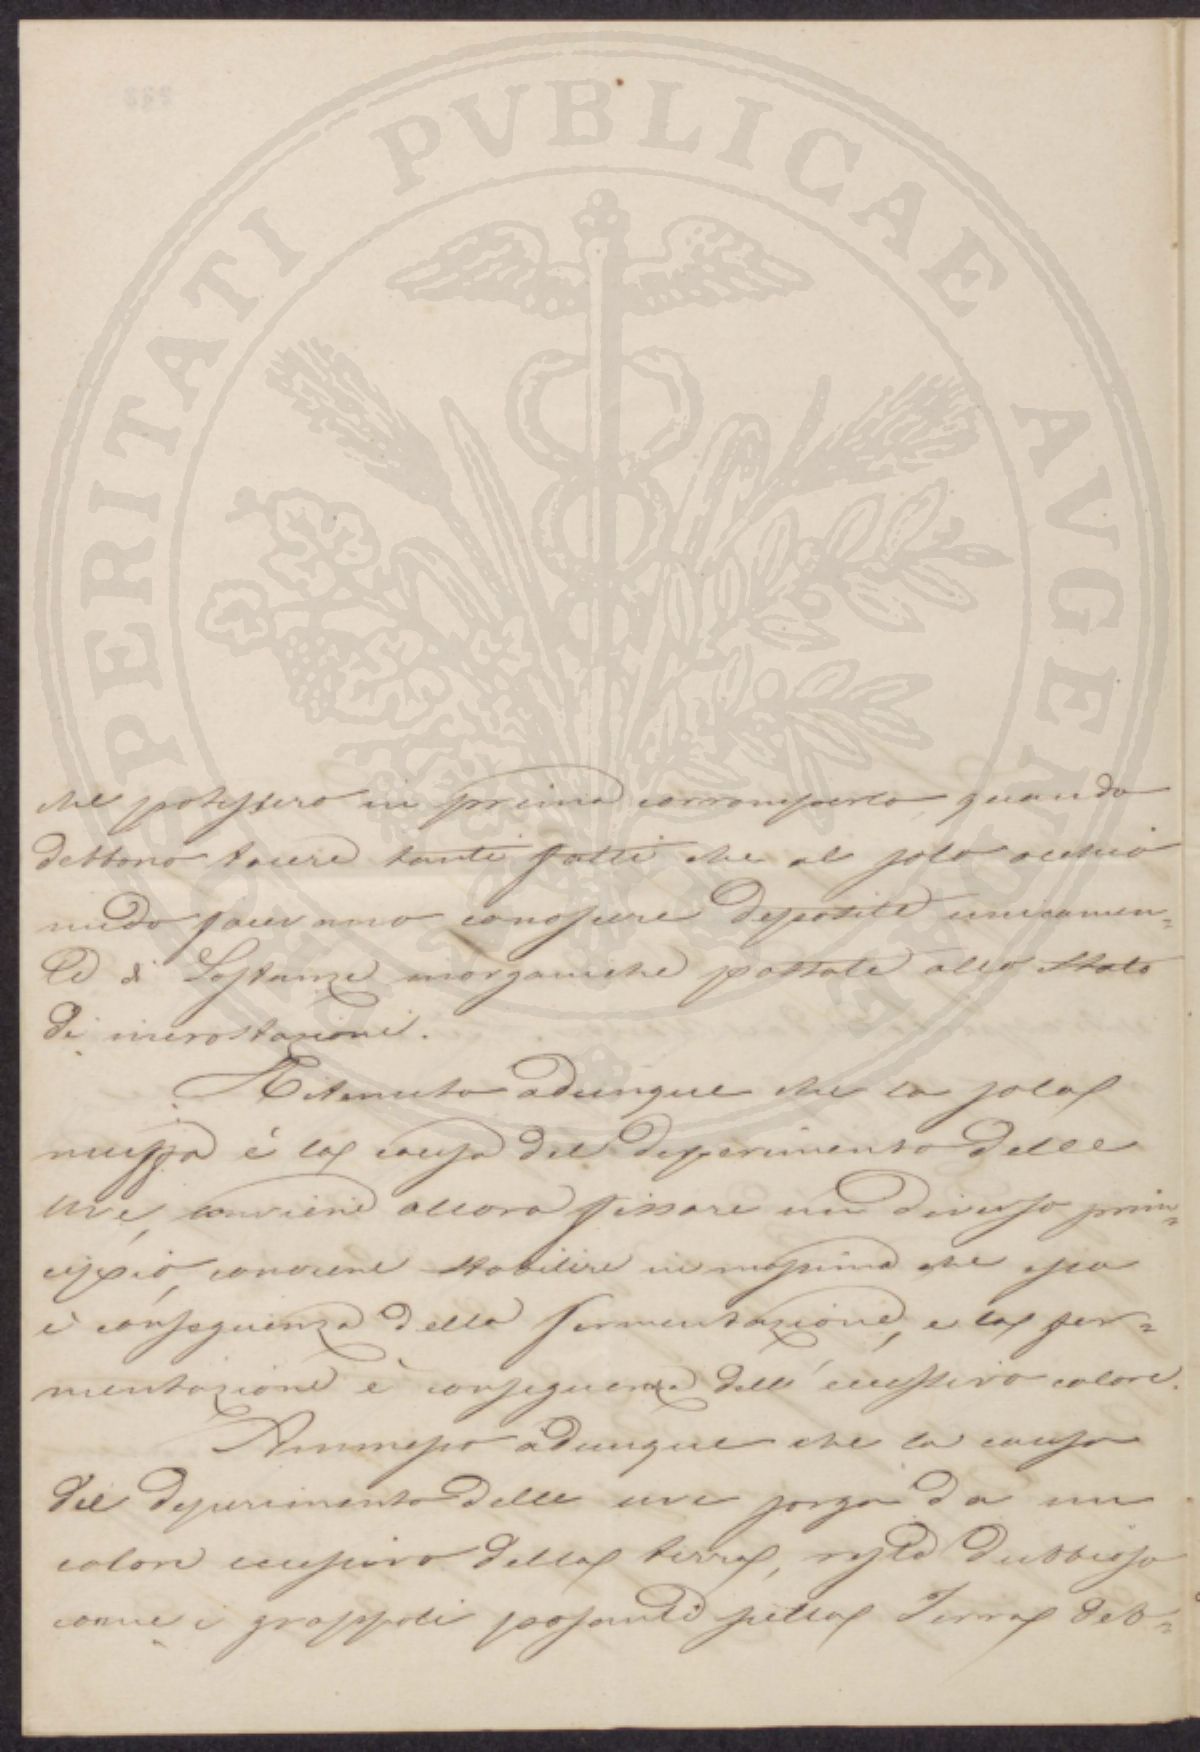 PROSPERITATI PVBLICAE AVGENDAE
che potessero in prima corromperlo, quando
debbono tacere tanti fatti che al solo occhio
nudo facevano conoscere deposito unicamen=
te di Sostanze inorganiche passate allo stato
di incrostazioni.
Ritenuto adunque che la sola
muffa è la causa del deperimento delle
Uve, conviene allora fissare un diverso prin=
cipio, conviene stabilire in massima che essa
è conseguenza della fermentazione, e la fer=
mentazione è conseguenza dell'eccessivo calore.
Ammesso adunque che la causa
del deperimento delle uve sorga da un
calore eccessivo della terra, resta dubbioso
come i grappoli posanti sulla Terra deb=